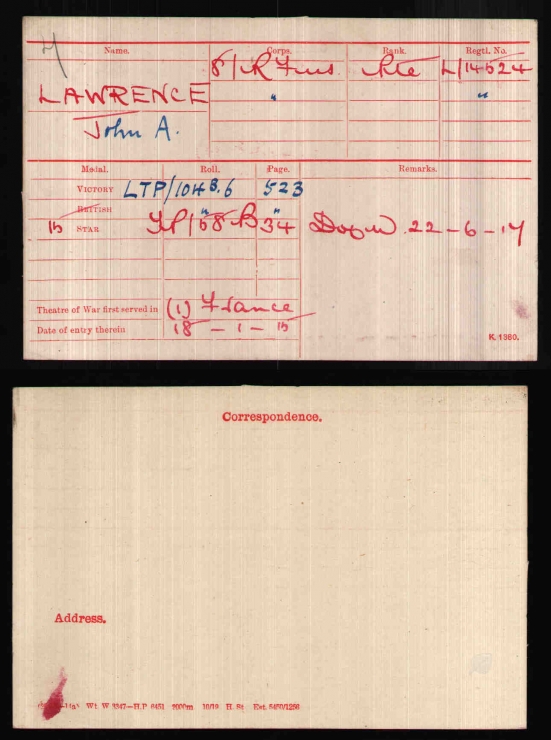 Name. Corps. Rank. Regtl. No.
8/R Fus. Pte L/14624
LAWRENCE " "
John A.
Medal. Roll. Page. Remarks.
VICTORY LTP/104 B.6 523
BRITISH " "
15 STAR 34 D of W 22-6-17
Theatre of War first served in (1) France
Date of entry therein 18-1-15
K. 1380.
Correspondence.
Address.
Wt. W 3347—H.P 6451 2000m 10/19 H. St Est. 5460/1256